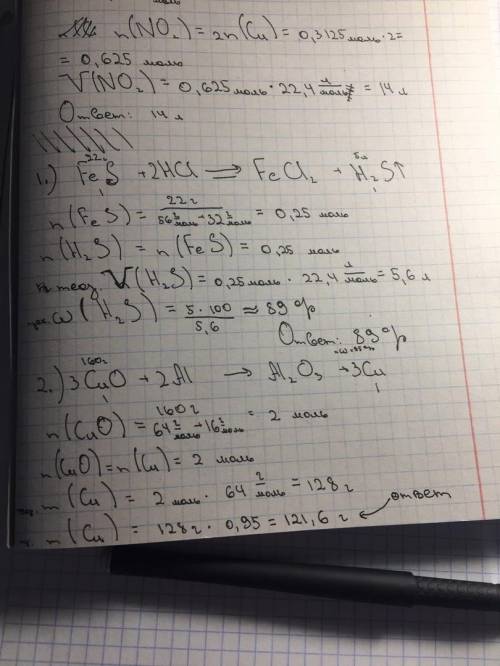 моль
n(NO₂) = 2n(Cu) = 0,3125 моль·2=
= 0,625 моль
V(NO₂) = 0,625 моль · 22,4 л/моль = 14 л
Ответ: 14 л
22г 5л
1.) FeS + 2HCl = FeCl₂ + H₂S↑
1 1
n(FeS) = 22г / 56 г/моль + 32 г/моль = 0,25 моль
n(H₂S) = n(FeS) = 0,25 моль
теор. V(H₂S) = 0,25 моль · 22,4 л/моль = 5,6 л
ω(H₂S) = 5·100 / 5,6 ≈ 89%
Ответ: 89%
160г
2.) 3CuO + 2Al → Al₂O₃ + 3Cu
1 1
n(CuO) = 160г / 64 г/моль + 16 г/моль = 2 моль
n(CuO) = n(Cu) = 2 моль
m(Cu) = 2 моль · 64 г/моль = 128 г
m(Cu) = 128 г · 0,95 = 121,6 г ← ответ